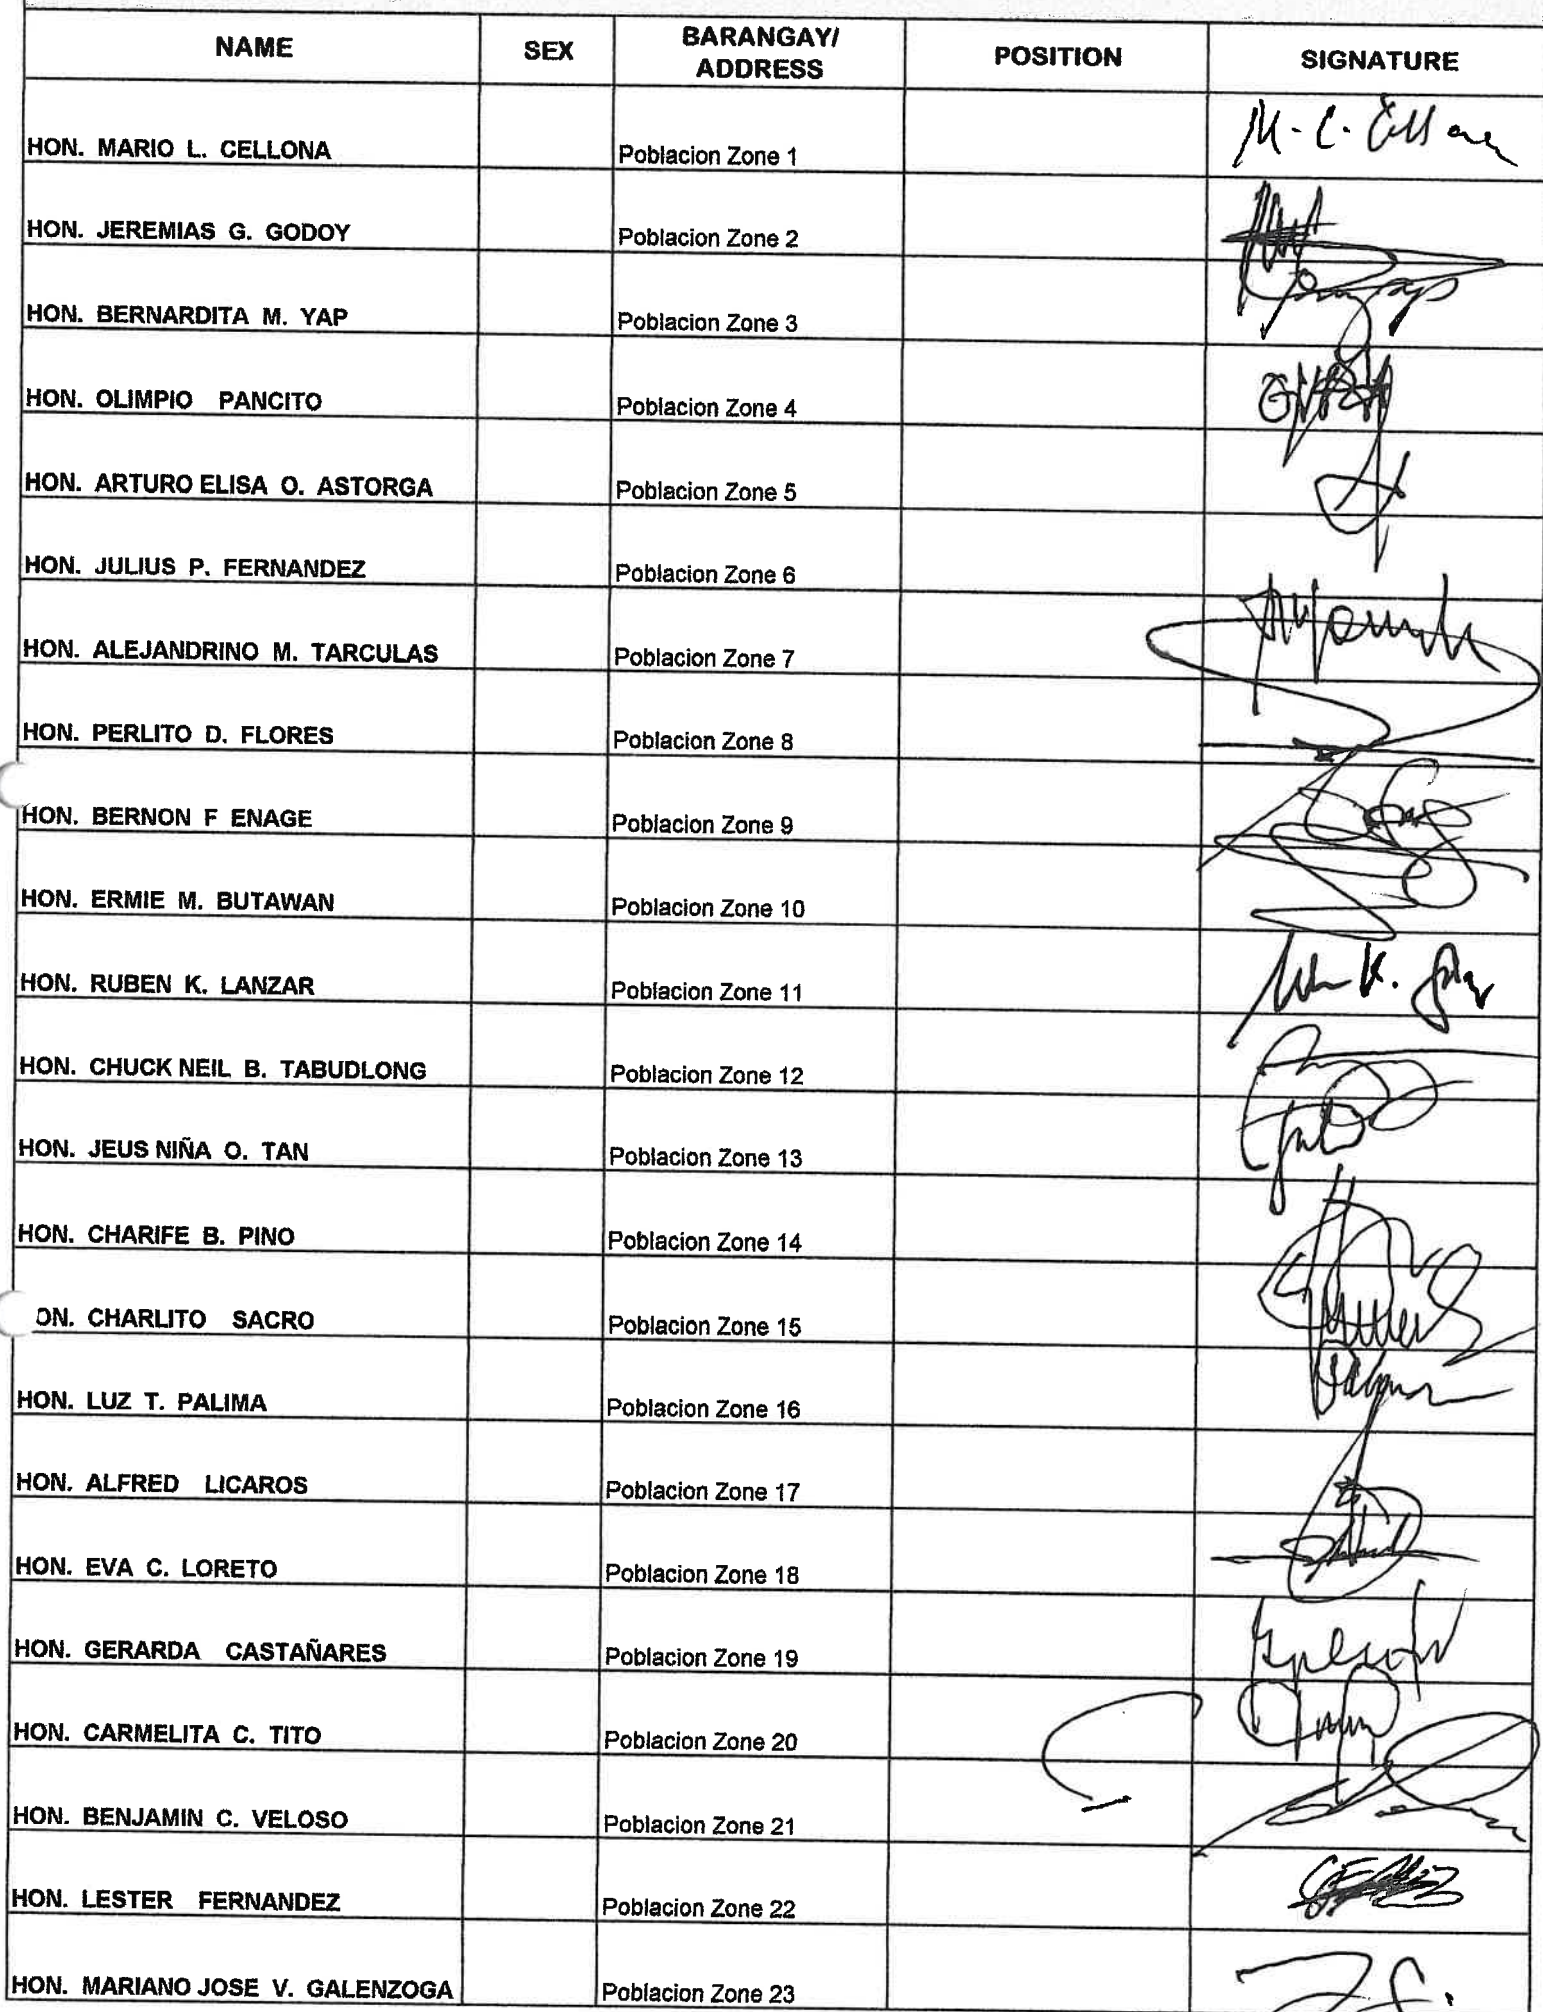 NAME SEX BARANGAY/ ADDRESS POSITION SIGNATURE
HON. MARIO L. CELLONA Poblacion Zone 1
HON. JEREMIAS G. GODOY Poblacion Zone 2
HON. BERNARDITA M. YAP Poblacion Zone 3
HON. OLIMPIO PANCITO Poblacion Zone 4
HON. ARTURO ELISA O. ASTORGA Poblacion Zone 5
HON. JULIUS P. FERNANDEZ Poblacion Zone 6
HON. ALEJANDRINO M. TARCULAS Poblacion Zone 7
HON. PERLITO D. FLORES Poblacion Zone 8
HON. BERNON F ENAGE Poblacion Zone 9
HON. ERMIE M. BUTAWAN Poblacion Zone 10
HON. RUBEN K. LANZAR Poblacion Zone 11
HON. CHUCK NEIL B. TABUDLONG Poblacion Zone 12
HON. JEUS NIÑA O. TAN Poblacion Zone 13
HON. CHARIFE B. PINO Poblacion Zone 14
ON. CHARLITO SACRO Poblacion Zone 15
HON. LUZ T. PALIMA Poblacion Zone 16
HON. ALFRED LICAROS Poblacion Zone 17
HON. EVA C. LORETO Poblacion Zone 18
HON. GERARDA CASTAÑARES Poblacion Zone 19
HON. CARMELITA C. TITO Poblacion Zone 20
HON. BENJAMIN C. VELOSO Poblacion Zone 21
HON. LESTER FERNANDEZ Poblacion Zone 22
HON. MARIANO JOSE V. GALENZOGA Poblacion Zone 23